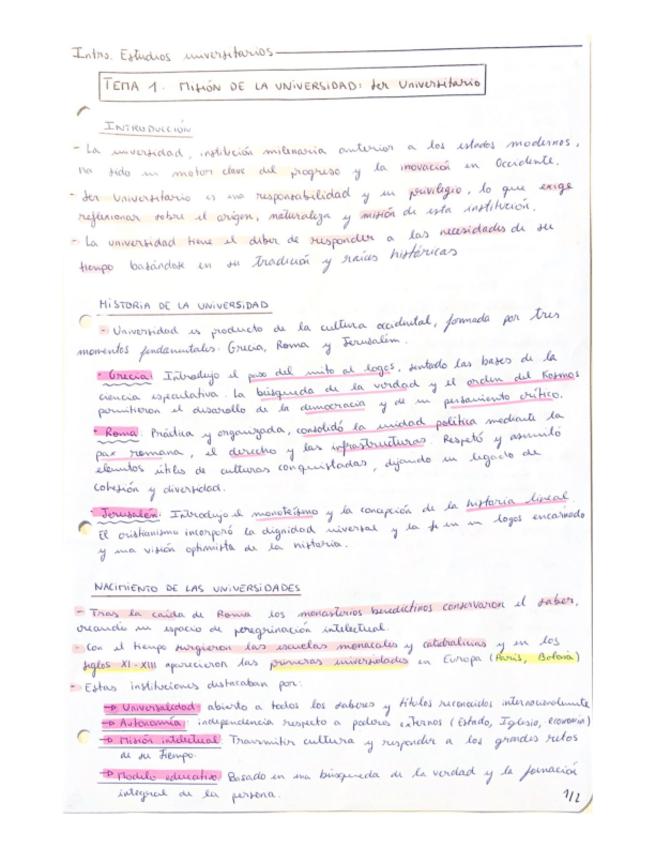 Intro. Estudios universitarios
TEMA 1. MISIÓN DE LA UNIVERSIDAD: Ser Universitario
INTRODUCCIÓN
- La universidad, institución milenaria anterior a los estados modernos,
ha sido un motor clave del progreso y la inovación en Occidente.
- Ser Universitario es una responsabilidad y un privilegio, lo que exige
reflexionar sobre el origen, naturaleza y misión de esta institución.
- La universidad tiene el deber de responder a las necesidades de su
tiempo basándose en su tradición y raíces históricas
HISTORIA DE LA UNIVERSIDAD
- Universidad es producto de la cultura occidental, formada por tres
momentos fundamentales. Grecia, Roma y Jerusalém.
· Grecia: Introdujo el paso del mito al logos, sentado las bases de la
ciencia especulativa. La búsqueda de la verdad y el orden del Kosmos
permitieron el desarollo de la democracia y de un pensamiento crítico.
· Roma: Práctica y organizada, consolidó la unidad política mediante la
pax romana, el derecho y las infraestructuras. Respetó y asumió
elementos útiles de culturas conquistadas, dejando un legado de
cohesión y diversidad.
· Jerusalén: Introdujo el monoteísmo y la concepción de la historia lineal.
El cristianismo incorporó la dignidad universal y la fe en un logos encarnado
y una visión optimista de la historia.
NACIMIENTO DE LAS UNIVERSIDADES
- Tras la caída de Roma los monasterios benedictinos conservaron el saber,
creando un espacio de peregrinación intelectual.
- Con el tiempo surgieron las escuelas monacales y catedralicias y en los
siglos XI-XIII aparecieron las primeras universidades en Europa (París, Bolonia)
- Estas instituciones destacaban por:
→ Universalidad: abierto a todos los saberes y títulos reconocidos internacionalmente
→ Autonomía: independencia respecto a poderes externos (Estado, Iglesia, economía)
→ Misión intelectual: Transmitir cultura y responder a los grandes retos
de su tiempo.
→ Modelo educativo: Basado en una búsqueda de la verdad y la formación
integral de la persona.
1/2